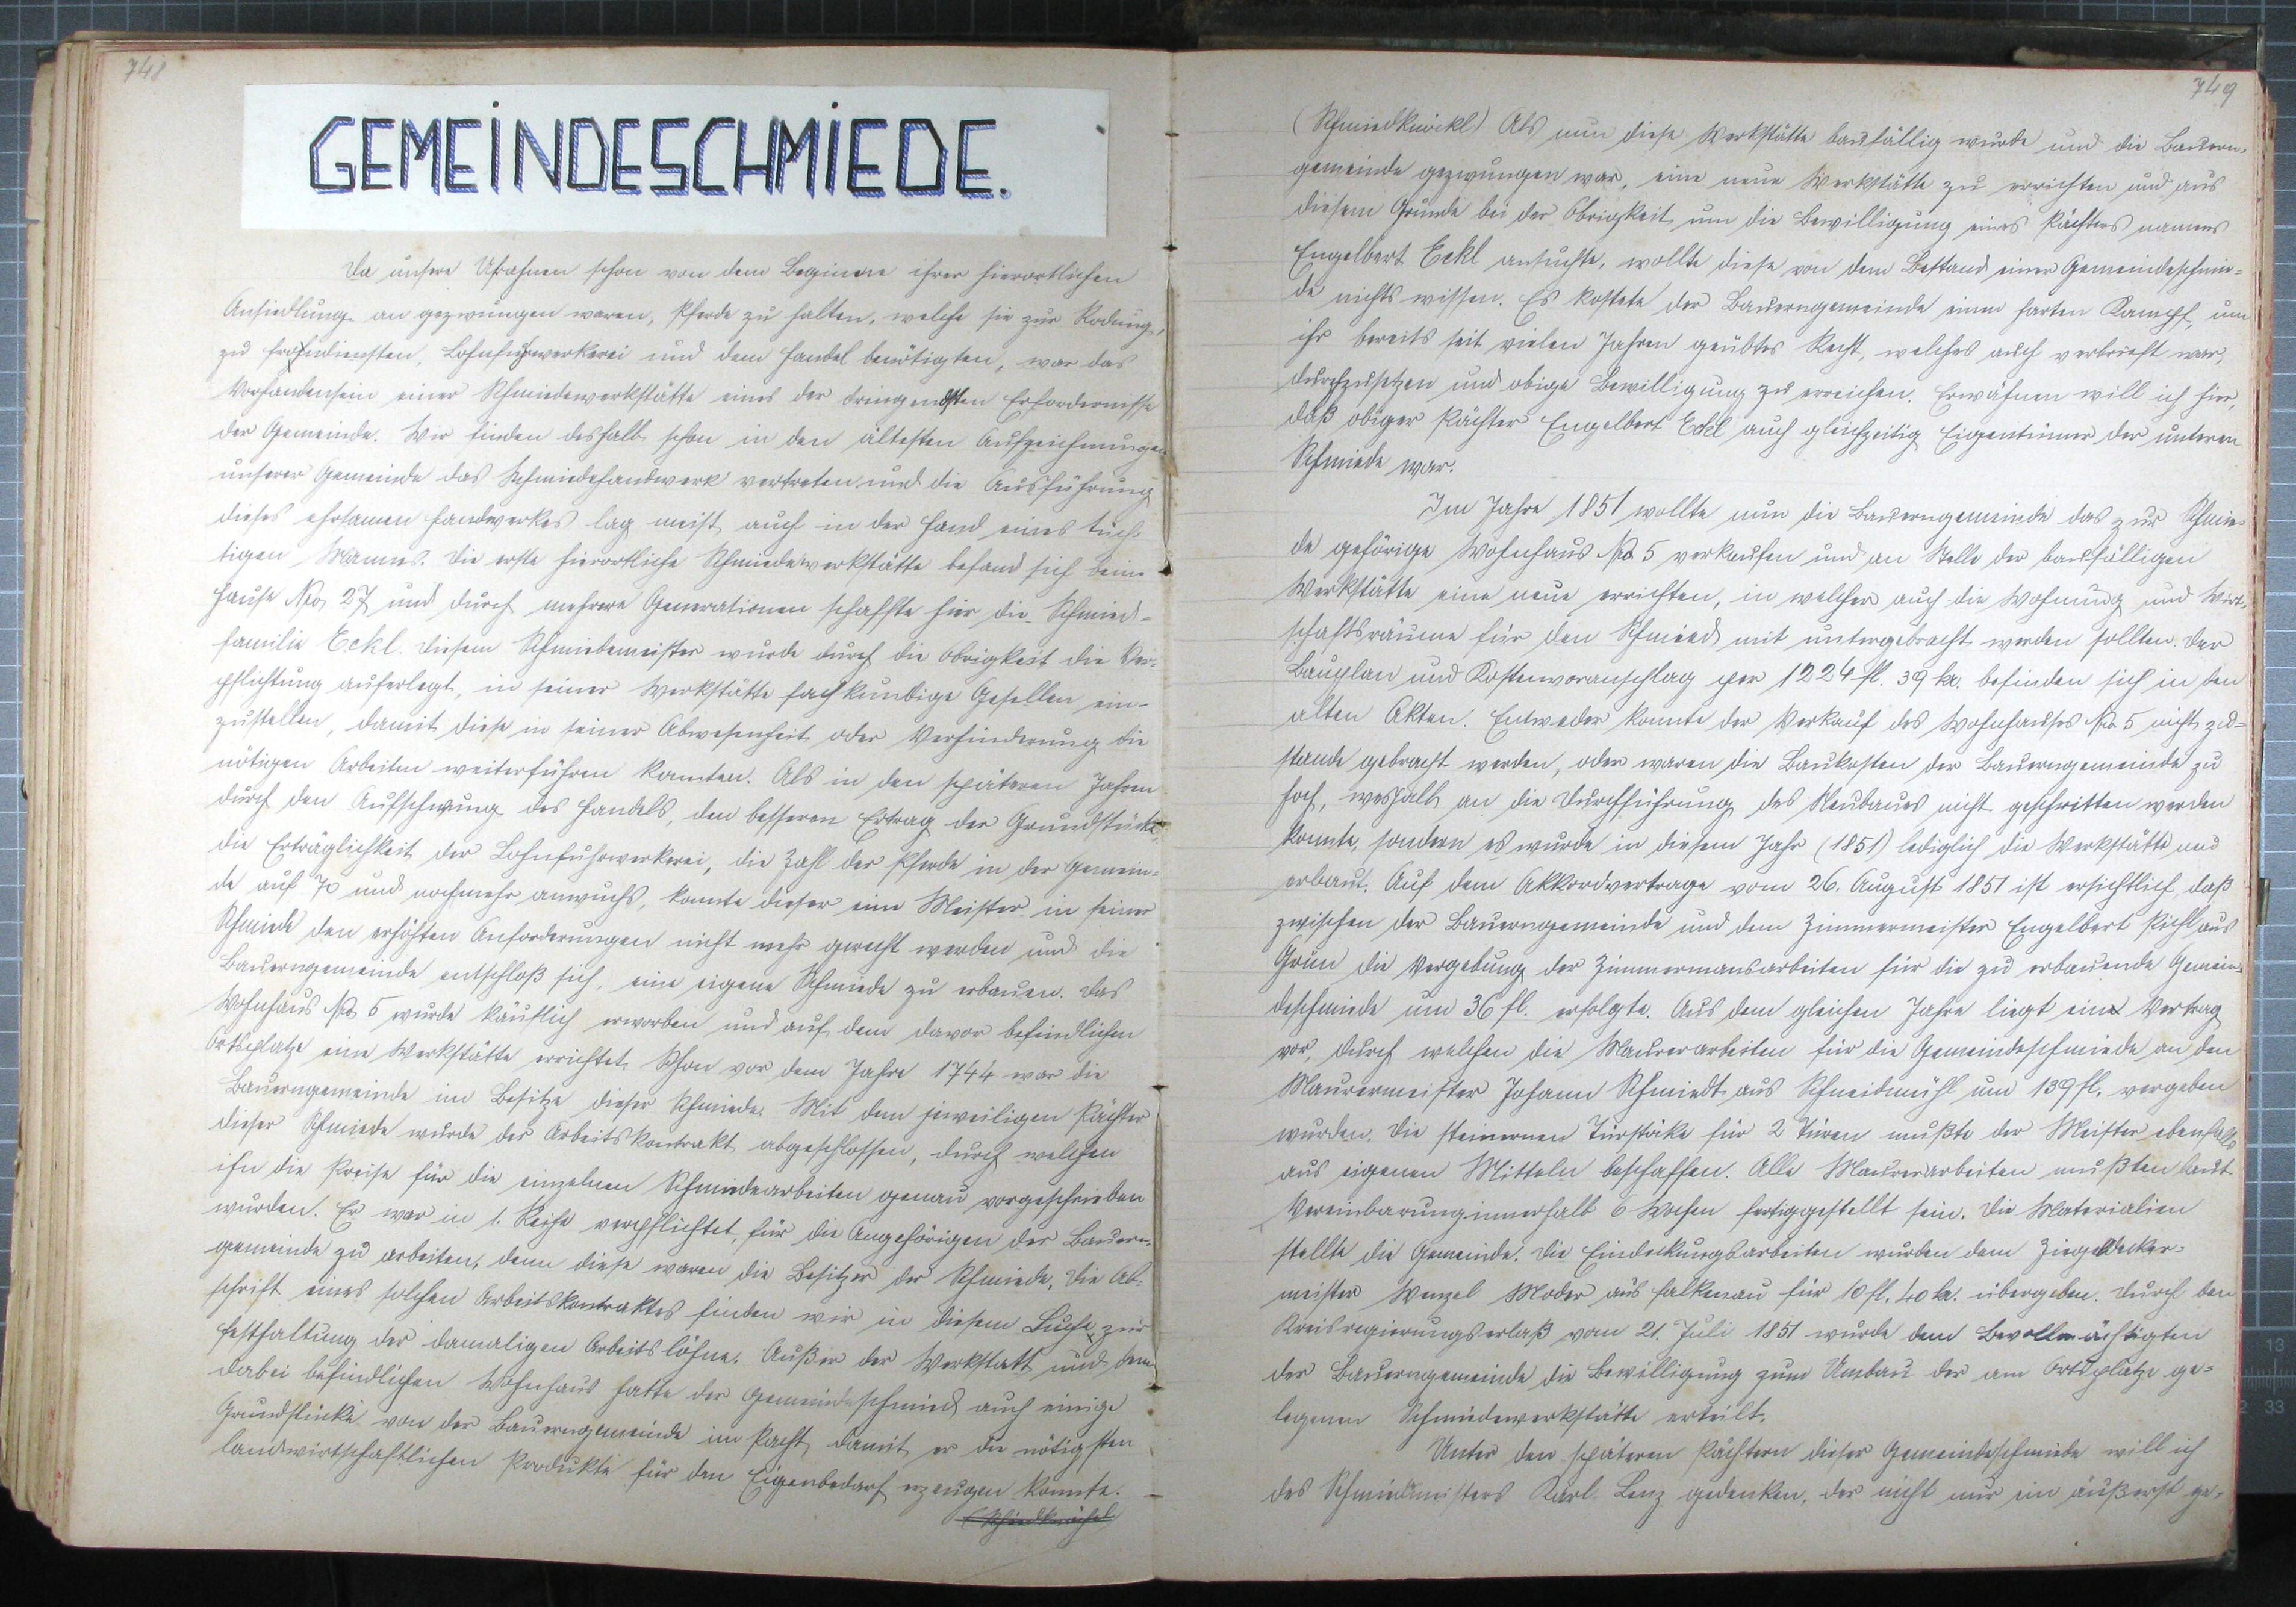 748
GEMEINDESCHMIEDE.
Da unsere Urahnen schon von dem Beginne ihrer hierortlichen
Ansiedlung an gezwungen waren, Pferde zu halten, welche sie zur Rodung,
zu Frohndiensten, Lohnfuhrwerkerei und dem Handel benötigten, war das
Vorhandensein einer Schmiedewerkstätte eines der dringendsten Erfordernisse
der Gemeinde. Wir finden deshalb schon in den ältesten Aufzeichnungen
unserer Gemeinde das Schmiedehandwerk vertreten und die Ausführung
dieses ehrsamen Handwerkes lag meist auch in der Hand eines tüch-
tigen Mannes. Die erste hierortliche Schmiedewerkstätte befand sich beim
Hause Nro 27 und durch mehrere Generationen schaffte hier die Schmied-
familie Eckl. Diesem Schmiedemeister wurde durch die Obrigkeit die Ver-
pflichtung auferlegt, in seiner Werkstätte fachkundige Gesellen ein-
zustellen, damit diese in seiner Abwesenheit oder Verhinderung die
nötigen Arbeiten weiterführen konnten. Als in den späteren Jahren
durch den Aufschwung des Handels, den besseren Ertrag der Grundstücke,
die Erträglichkeit der Lohnfuhrwerkerei, die Zahl der Pferde in der Gemein-
de auf 70 und nochmehr anwuchs, konnte dieser eine Meister in seiner
Schmiede den erhöhten Anforderungen nicht mehr gerecht werden und die
Bauerngemeinde entschloß sich, eine eigene Schmiede zu erbauen. Das
Wohnhaus Nro 5 wurde käuflich erworben und auf dem davor befindlichen
Ortsplatze eine Werkstätte errichtet. Schon vor dem Jahre 1744 war die
Bauerngemeinde im Besitze dieser Schmiede. Mit dem jeweiligen Pächter
dieser Schmiede wurde der Arbeitskontrakt abgeschlossen, durch welchen
ihn die Preise für die einzelnen Schmiedearbeiten genau vorgeschrieben
wurden. Er war in 1. Reihe verpflichtet, für die Angehörigen der Bauern-
gemeinde zu arbeiten, denn diese waren die Besitzer der Schmiede. Die Ab-
schrift eines solchen Arbeitskontraktes finden wir in diesem Buche zur
Festhaltung der damaligen Arbeitslöhne. Außer der Werkstatt und dem
dabei befindlichen Wohnhaus hatte der Gemeindeschmied auch einige
Grundstücke von der Bauerngemeinde im Pacht, damit er die nötigsten
landwirtschaftlichen Produkte für den Eigenbedarf erzeugen konnte.
749
(Schmiedknöckl) Als nun diese Werkstätte baufällig wurde und die Bauern-
gemeinde gezwungen war, eine neue Werkstätte zu errichten und aus
diesem Grunde bei der Obrigkeit um die Bewilligung eines Pächters namens
Engelbert Eckl ansuchte, wollte diese von dem Bestand einer Gemeindeschmie-
de nichts wissen. Es kostete der Bauerngemeinde einen harten Kampf, um
ihr bereits seit vielen Jahren geübtes Recht, welches auch verbrieft war,
durchzusetzen und obige Bewilligung zu erreichen. Erwähnen will ich hier,
daß obiger Pächter Engelbert Eckl auch gleichzeitig Eigentümer der unteren
Schmiede war.
Im Jahre 1851 wollte nun die Bauerngemeinde das zur Schmie-
de gehörige Wohnhaus Nro 5 verkaufen und an Stelle der baufälligen
Werkstätte eine neue errichten, in welcher auch die Wohnung und Wirt-
schaftsräume für den Schmied mit untergebracht werden sollten. Der
Bauplan und Kostenvoranschlag per 1224 fl. 39 kr. befinden sich in den
alten Akten. Entweder konnte der Verkauf des Wohnhauses Nro 5 nicht zu-
stande gebracht werden, oder waren die Baukosten der Bauerngemeinde zu
hoch, weshalb an die Durchführung des Neubaues nicht geschritten werden
konnte, sondern es wurde in diesem Jahr (1851) lediglich die Werkstätte neu
erbaut. Auf dem Akkordvertrage vom 26. August 1851 ist ersichtlich, daß
zwischen der Bauerngemeinde und dem Zimmermeister Engelbert Pichl aus
Grün die Vergebung der Zimmermansarbeiten für die zu erbauende Gemein-
deschmiede um 36 fl. erfolgte. Aus dem gleichen Jahre liegt ein Vertrag
vor, durch welchen die Maurerarbeiten für die Gemeindeschmiede an den
Maurermeister Johann Schmiedt aus Schneidmühl um 139 fl. vergeben
wurden. Die steinernen Türstöcke für 2 Türen mußte der Meister ebenfalls
aus eigenen Mitteln beschaffen. Alle Maurerarbeiten mußten laut
Vereinbarung innerhalb 6 Wochen fertiggestellt sein. Die Materialien
stellte die Gemeinde. Die Eindeckungsarbeiten wurden dem Ziegeldecker-
meister Wenzel Moder aus Falkenau für 10 fl. 40 kr. übergeben. Durch den
Kreisregierungserlaß vom 21. Juli 1851 wurde dem Bevollmächtigten
der Bauerngemeinde die Bewilligung zum Umbau der am Ortsplatze ge-
legenen Schmiedewerkstätte erteilt.
Unter den späteren Pächtern dieser Gemeindeschmiede will ich
des Schmiedmeisters Karl Lenz gedenken, der nicht nur ein äußerst ge-
13
33